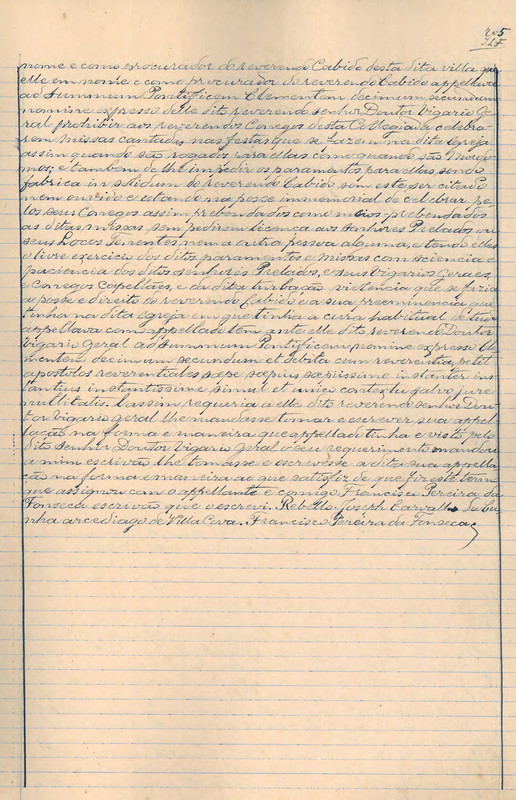 205
nome e como procurador do reverendo Cabido desta dita villa que
elle em nome e como procurador do reverendo Cabido appellava
ad Summum Pontificem Clementem decimum secundum
nomine expresso delle dito reverendo senhor Doutor Vigario Ge-
ral prohibir aos reverendos Conegos desta Collegiada celebra-
rem missas cantadas nas festas que se fazem na dita Igreja
assim quando são rogados para ellas como quando são Mordo-
mos; e tambem de lhe impedir os paramentos para ellas, sendo
fabrica in solidum do reverendo Cabido sem este ser citado
nem ouvido e estando na posse immemorial de celebrar pe-
los seus Conegos assim prebendados como meios-prebendados
as ditas missas sem pedirem licença aos senhores Prelados ou
seus Locos Tenentes, nem a outra pessoa alguma, e tendo elles
o livre exercicio dos ditos paramentos e missas com sciencia e
paciencia dos ditos senhores Prelados, e seus Vigarios Geraes,
e Conegos Capellães, e da dita turbação violencia que se fazia
a posse e direito do reverendo Cabido e a sua preeminencia que
tinha na dita Igreja em que tinha a cura habitual de tudo
appellava como appellado tem ante elle dito reverendo Doutor
Vigario Geral ad Summum Pontificem nomine expresso Cle-
mentem decimum secundum et debita cum reverentia petit
apostolos reverentiales sæpe sæpius sæpissime instanter ins-
tantius instantissime simul et unico contextu salvo jure
nullitatis. E assim requeria a elle dito reverendo senhor Dou-
tor Vigario geral lhe mandasse tomar e escrever sua appel-
lação na forma e maneira que appellado tinha e visto pelo
dito senhor Doutor Vigario Geral o seu requerimento mandou
a mim escrivão lhe tomasse e escrevesse a dita sua appella-
ção na forma e maneira ao que satisfiz de que fiz este termo
que assignou com o appellante e comigo Francisco Pereira da
Fonseca escrivão que o escrevi. Rebello. Joseph Carvalho da Cu-
nha arcediago de Villa Cova. Francisco Pereira da Fonseca